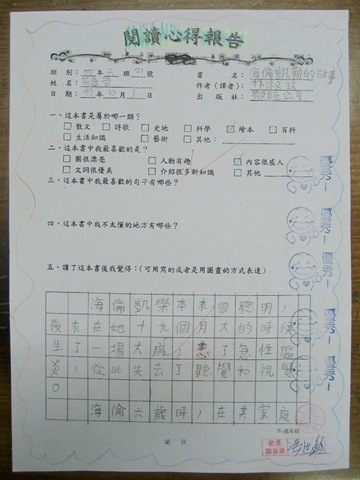 閱讀心得報告
班別：四年 班 號 書名：海倫凱勒的故事
姓名： 作者（譯者）：
日期： 年10月1 出版社：
一、這本書是屬於哪一類？
□散文 □詩歌 □史地 □科學 ☑繪本 □百科
□生活知識 □藝術 □其他：
二、這本書中我最喜歡的是？
□圖很漂亮 □人物有趣 ☑內容很感人
□文詞很優美 □介紹很多新知識 □其他
三、這本書中我最喜歡的句子有哪些？
四、這本書中我不太懂的地方有哪些？
五、讀了這本書後我覺得：（可用寫的或者是用圖畫的方式表達）
海倫凱樂本來很聰明，
後來在她十九個月大的時候
生了一場大病，患了急性腦
炎，從此失去了聽覺和視覺
。
海倫六歲時，在其家庭
優秀
優秀
優秀
優秀
優秀
第 頁